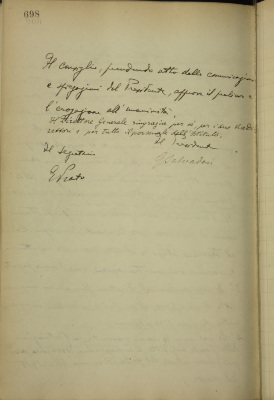 698
Il Consiglio, prendendo atto delle comunicazioni
e spiegazioni del Presidente, approva il
l'erogazione all'unanimità.
Il Direttore Generale ringrazia per sé, per i suoi
e per tutto il personale dell'Istituto.
Il Presidente
Il Segretario
G Salvadori
E Prato